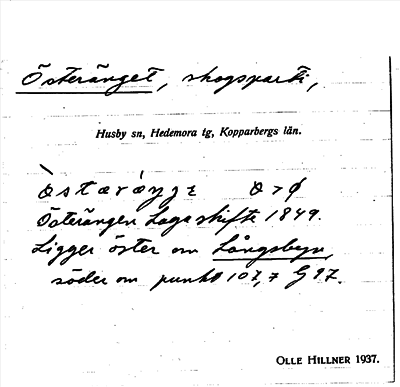 Österänget, skogsparti,
Husby sn, Hedemora tg, Kopparbergs län.
Österängen Laga skifte 1849.
Ligger öster om Långsbyn,
söder om punkt 107,7 G 97.
OLLE HILLNER 1937.